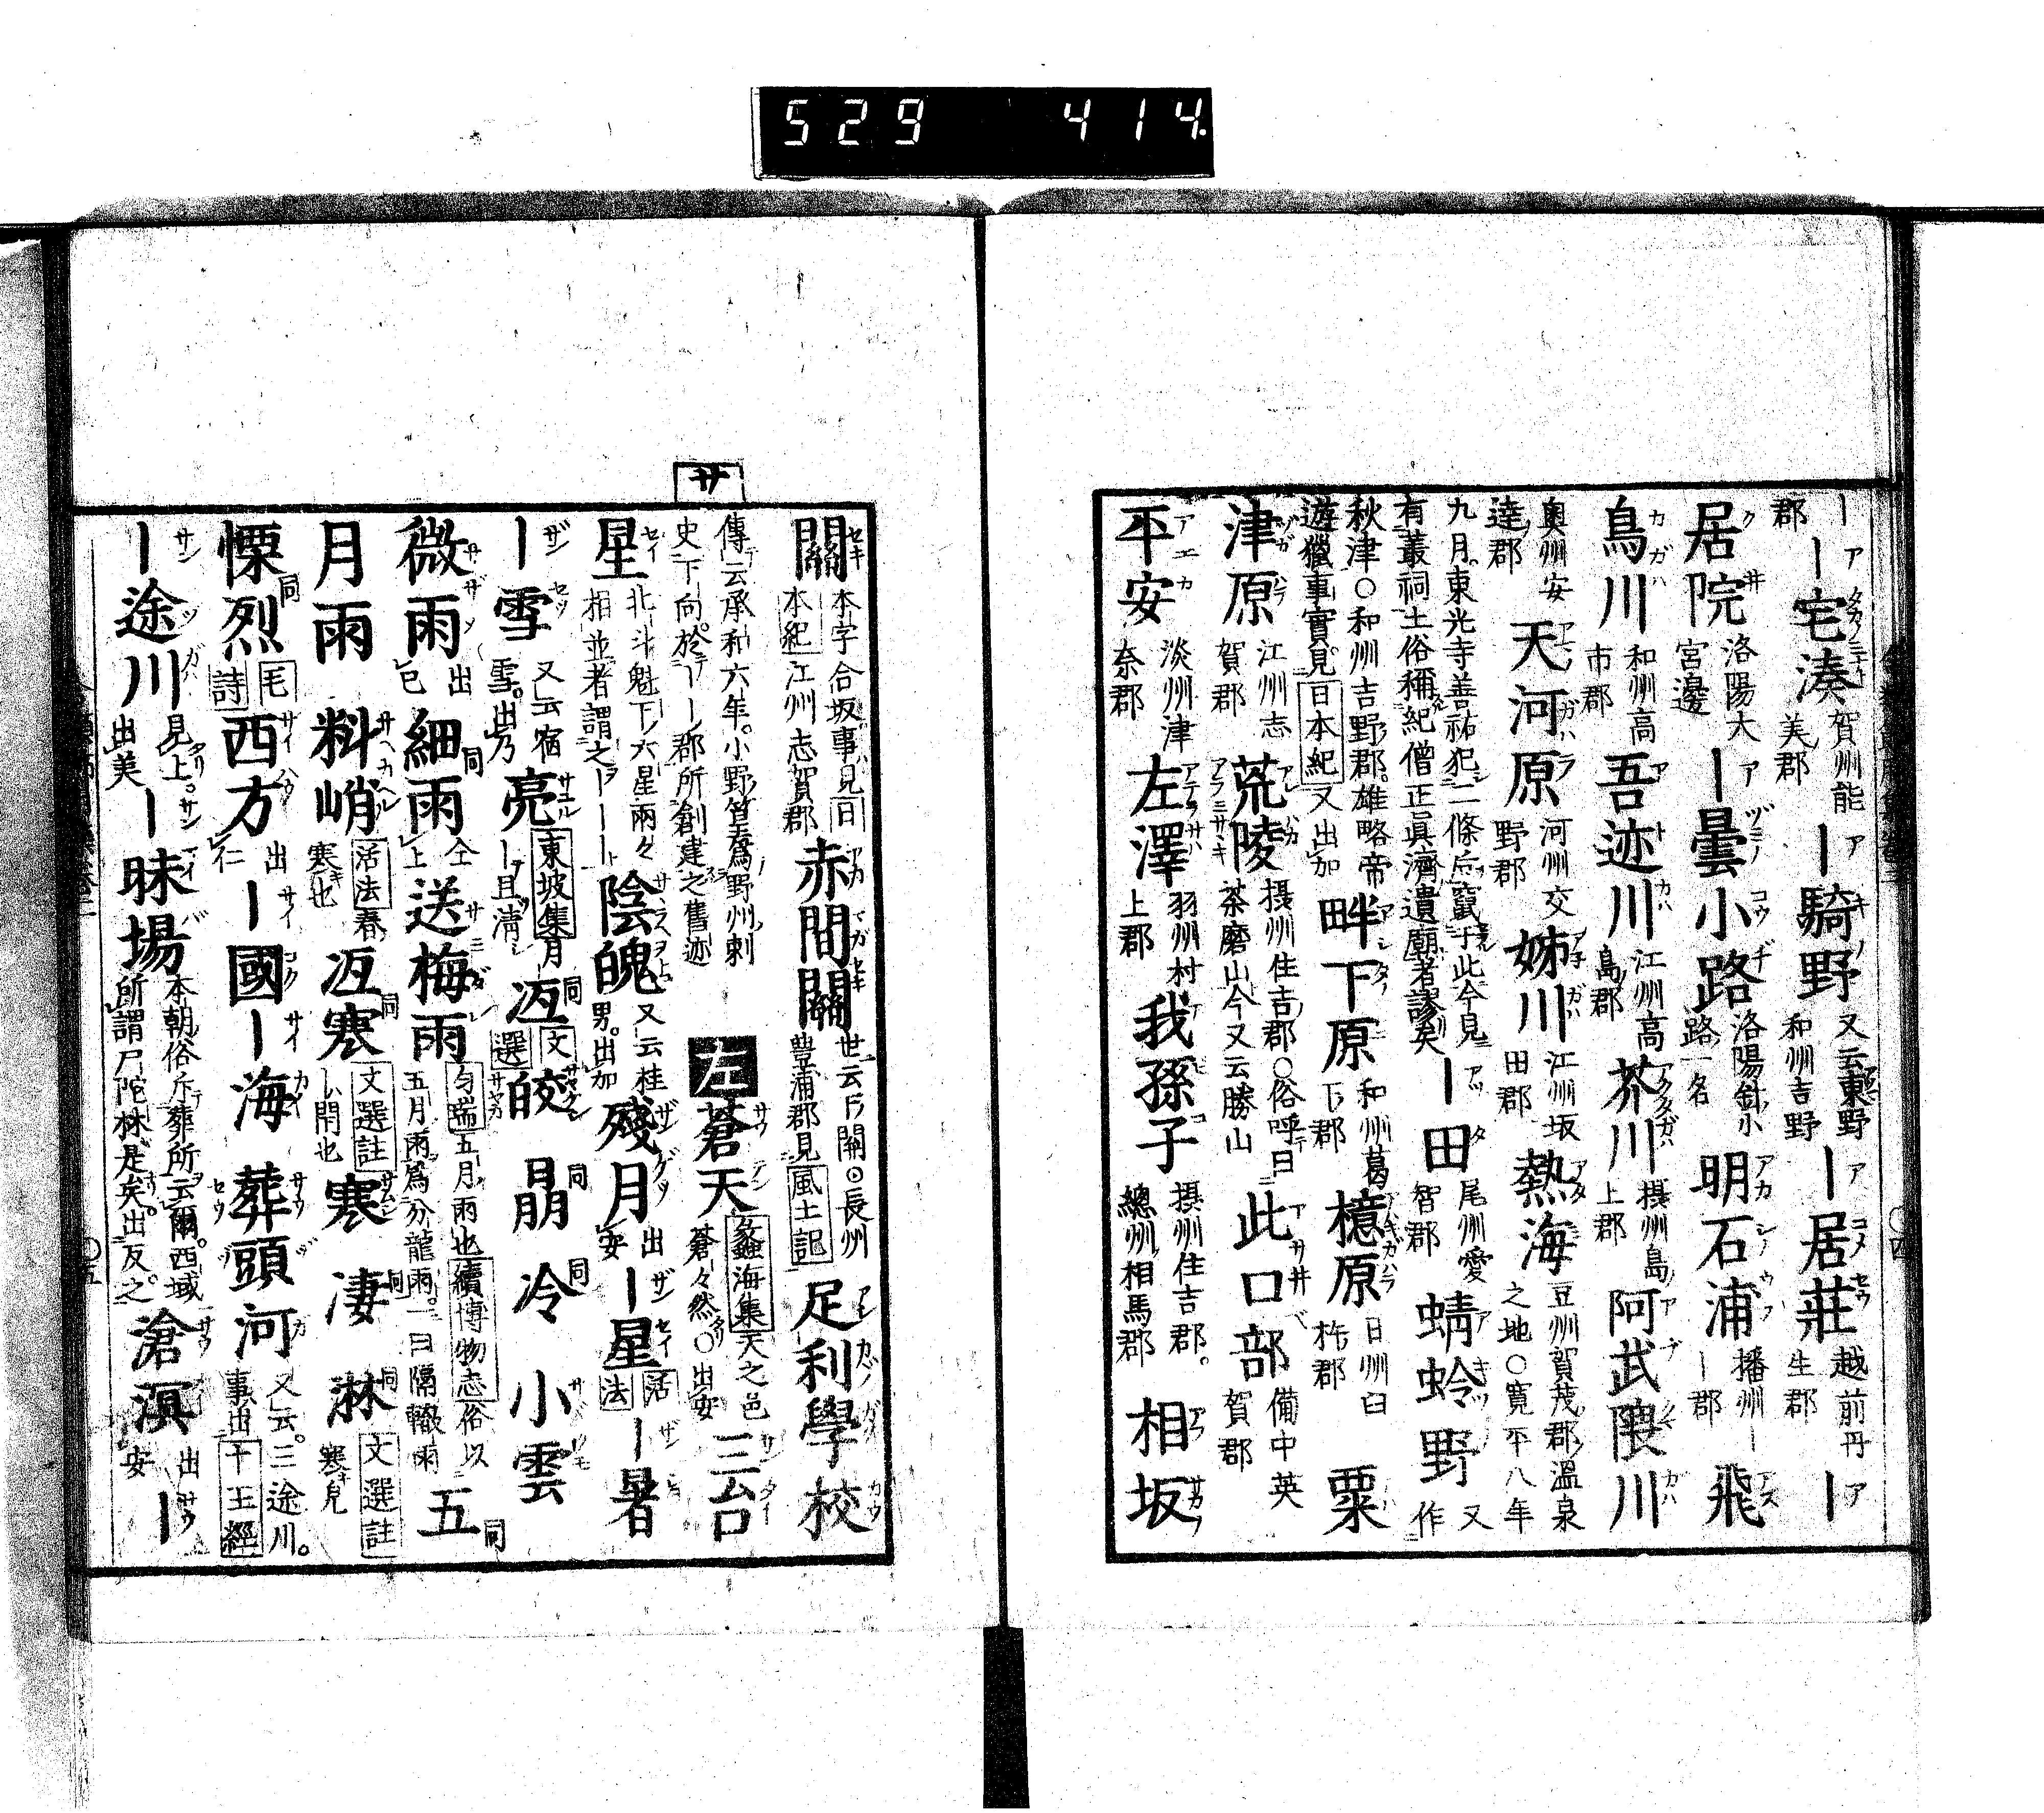 529 414.
郡
｜｜宅湊 賀州能美郡 ｜騎野 又云東野和州吉野 ｜居莊 越前丹生郡 ｜
居院 洛陽大宮邊 ｜曇小路 洛陽針小路一名 明石浦 播州｜｜郡 飛
鳥川 和州高市郡 吾迹川 江州高島郡 芥川 摂州島上郡 阿武隈川
奥州安達郡 天河原 河州交野郡 姊川 江州坂田郡 熱海 豆州賀茂郡溫泉之地○寛平八年
九月東光寺善祐犯二條后竄于此今見有叢祠土俗稱紀僧正眞濟遺廟者謬矣 ｜田 尾州愛智郡 蜻蛉野 又作
秋津○和州吉野郡雄略帝遊獵事實見日本紀又出加 畔下原 和州葛下郡 檍原 日州臼杵郡 粟
津原 江州志賀郡 荒陵 摂州住吉郡○俗呼曰茶磨山今又云勝山 此口部 備中英賀郡
平安 淡州津奈郡 左澤 羽州村上郡 我孫子 摂州住吉郡。總州相馬郡 相坂
サ
關 本字合坂事見日本紀江州志賀郡 赤間關 世云下關○長州豊浦郡見風土記 足利學校
傳云承和六年。小野篁爲野州刺史下向。於｜｜郡所創建之舊迹 左 蒼天 蠡海集天之色蒼々然○出安 三台
星 北斗魁下六星兩々相並者謂之｜｜｜ 陰魄 又云桂男。出加 殘月 出安 ｜星 活法 ｜暑
｜雪 又云宿雪。出乃 亮 東坡集月｜且淸 冱 同文選 皎 晶 同 冷 同 小雲
微雨 出已 細雨 同仝上 送梅雨 匀端五月雨也續博物志俗以五月雨爲分龍雨。一曰隔轍雨 五 同
月雨 料峭 活法春寒也 冱寒 同文選註｜閉也 寒 凄 同 淋 同文選註寒皃
慄烈 同毛詩 西方 出仁 ｜國 ｜海 葬頭河 又云。三途川。事出十王經
｜途川 見上。出美 ｜昧場 本朝俗斥葬所云爾。西域所謂尸陀林是矣。出反之。 滄溟 出安 ｜